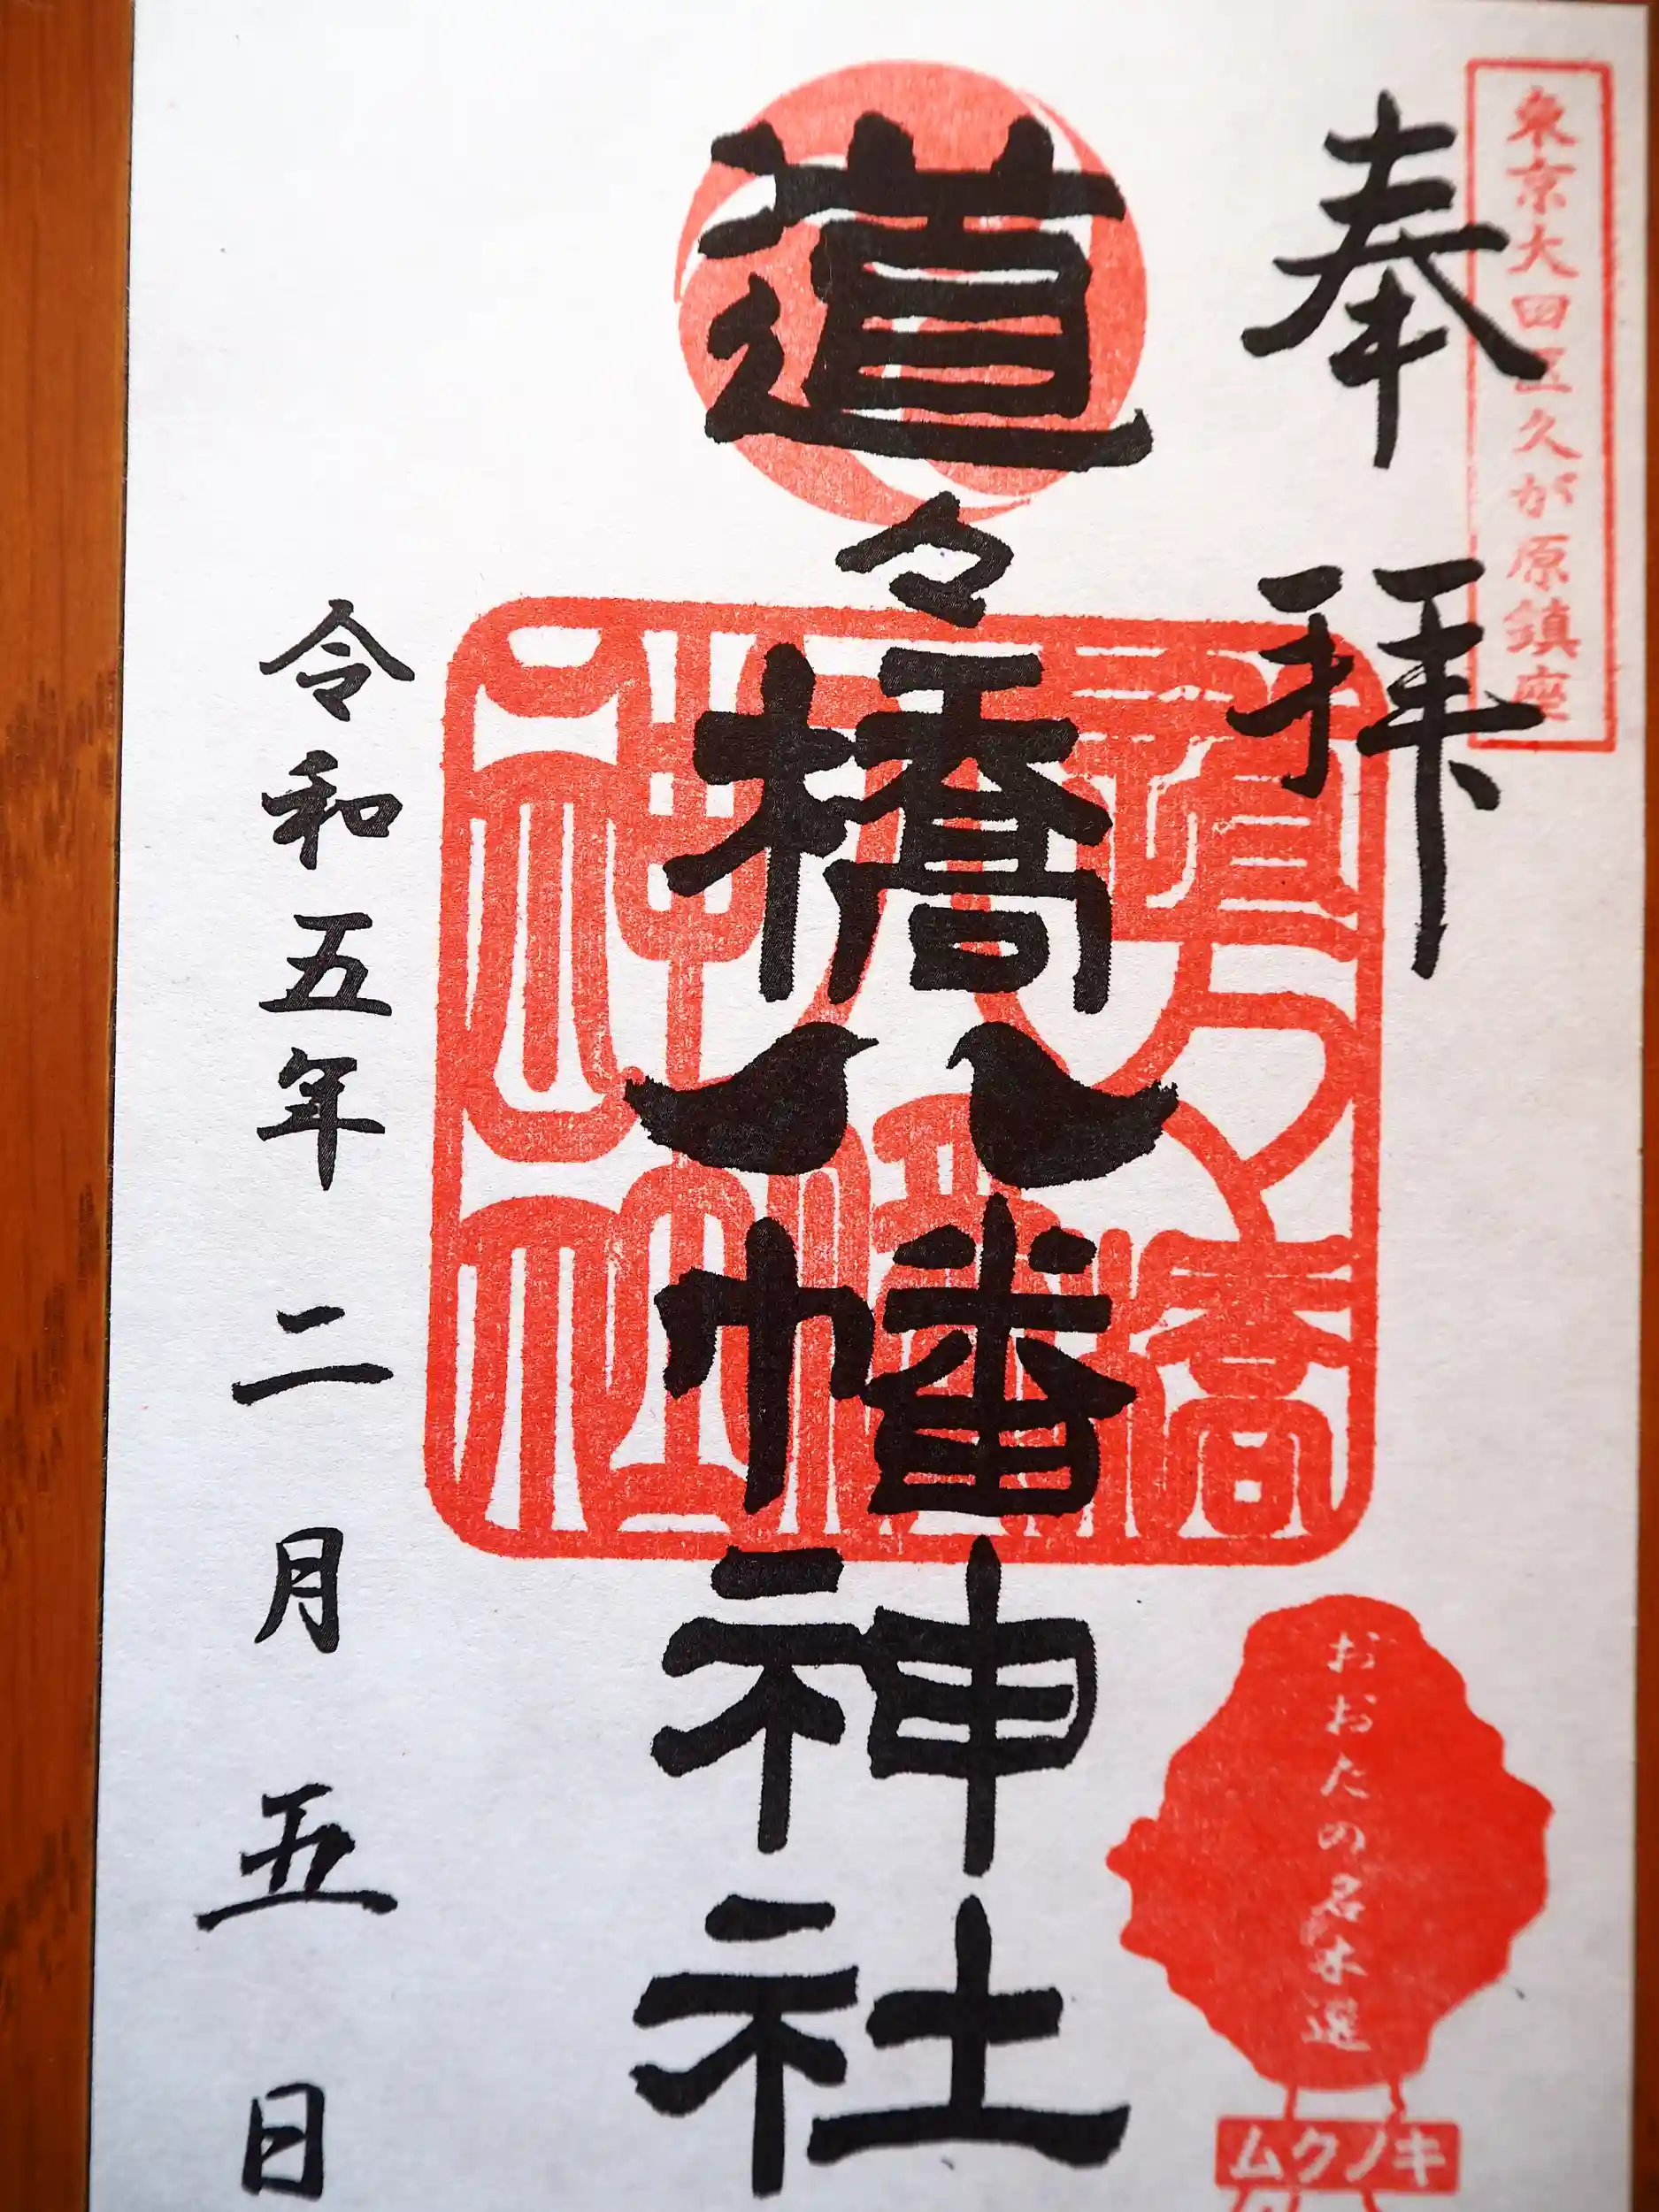 東京大田区久が原鎮座
奉拝
道々橋八幡神社
道々橋
八幡
神社
令和五年二月五日
おおたの名木選
ムクノキ